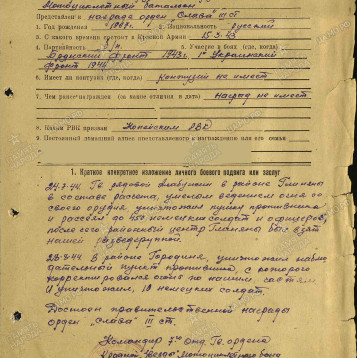 Мотоциклетный батальон
Представлен к награде орден "Слава" III ст.
1. Год рождения 2. Национальность русский
3. С какого времени состоит в Красной Армии 15.3.43
4. Партийность б/п 5. Участие в боях (где, когда)
фронт 1943 г. 1 Украинский
фронт 1944
6. Имеет ли контузии (где, когда) контузий не имеет
7. Чем ранее награжден (за какие отличия и дата) наград не имеет
8. Каким РВК призван Копейским РВК
9. Постоянный домашний адрес представляемого к награждению или его семьи
1. Краткое конкретное изложение личного боевого подвига или заслуг
24.7.44 Гв. рядовой в районе Глиняны
в составе расчета, умелым ведением огня из
своего орудия уничтожил пушку противника
и рассеял до немецких солдат и офицеров,
после чего районный центр Глиняны был взят
нашей разведгруппой.
28.7.44 В районе Городина, уничтожил наблю
дательный пункт противника, с которого
корректировался огонь по нашим частям
и уничтожил 10 немецких солдат.
Достоин правительственной награды
орден "Слава" III ст.
Командир 7го Отд. Гв. ордена
Красной Звезды Мотоциклетного б-на